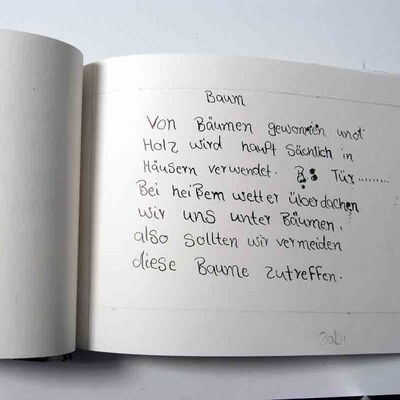 Baum
Von Bäumen gewonnen und
Holz wird haupt sächlich in
Häusern verwendet. B: Tür.........
Bei heißem wetter überdachen
wir uns unter Bäumen.
also sollten wir vermeiden
diese Baume zutreffen.